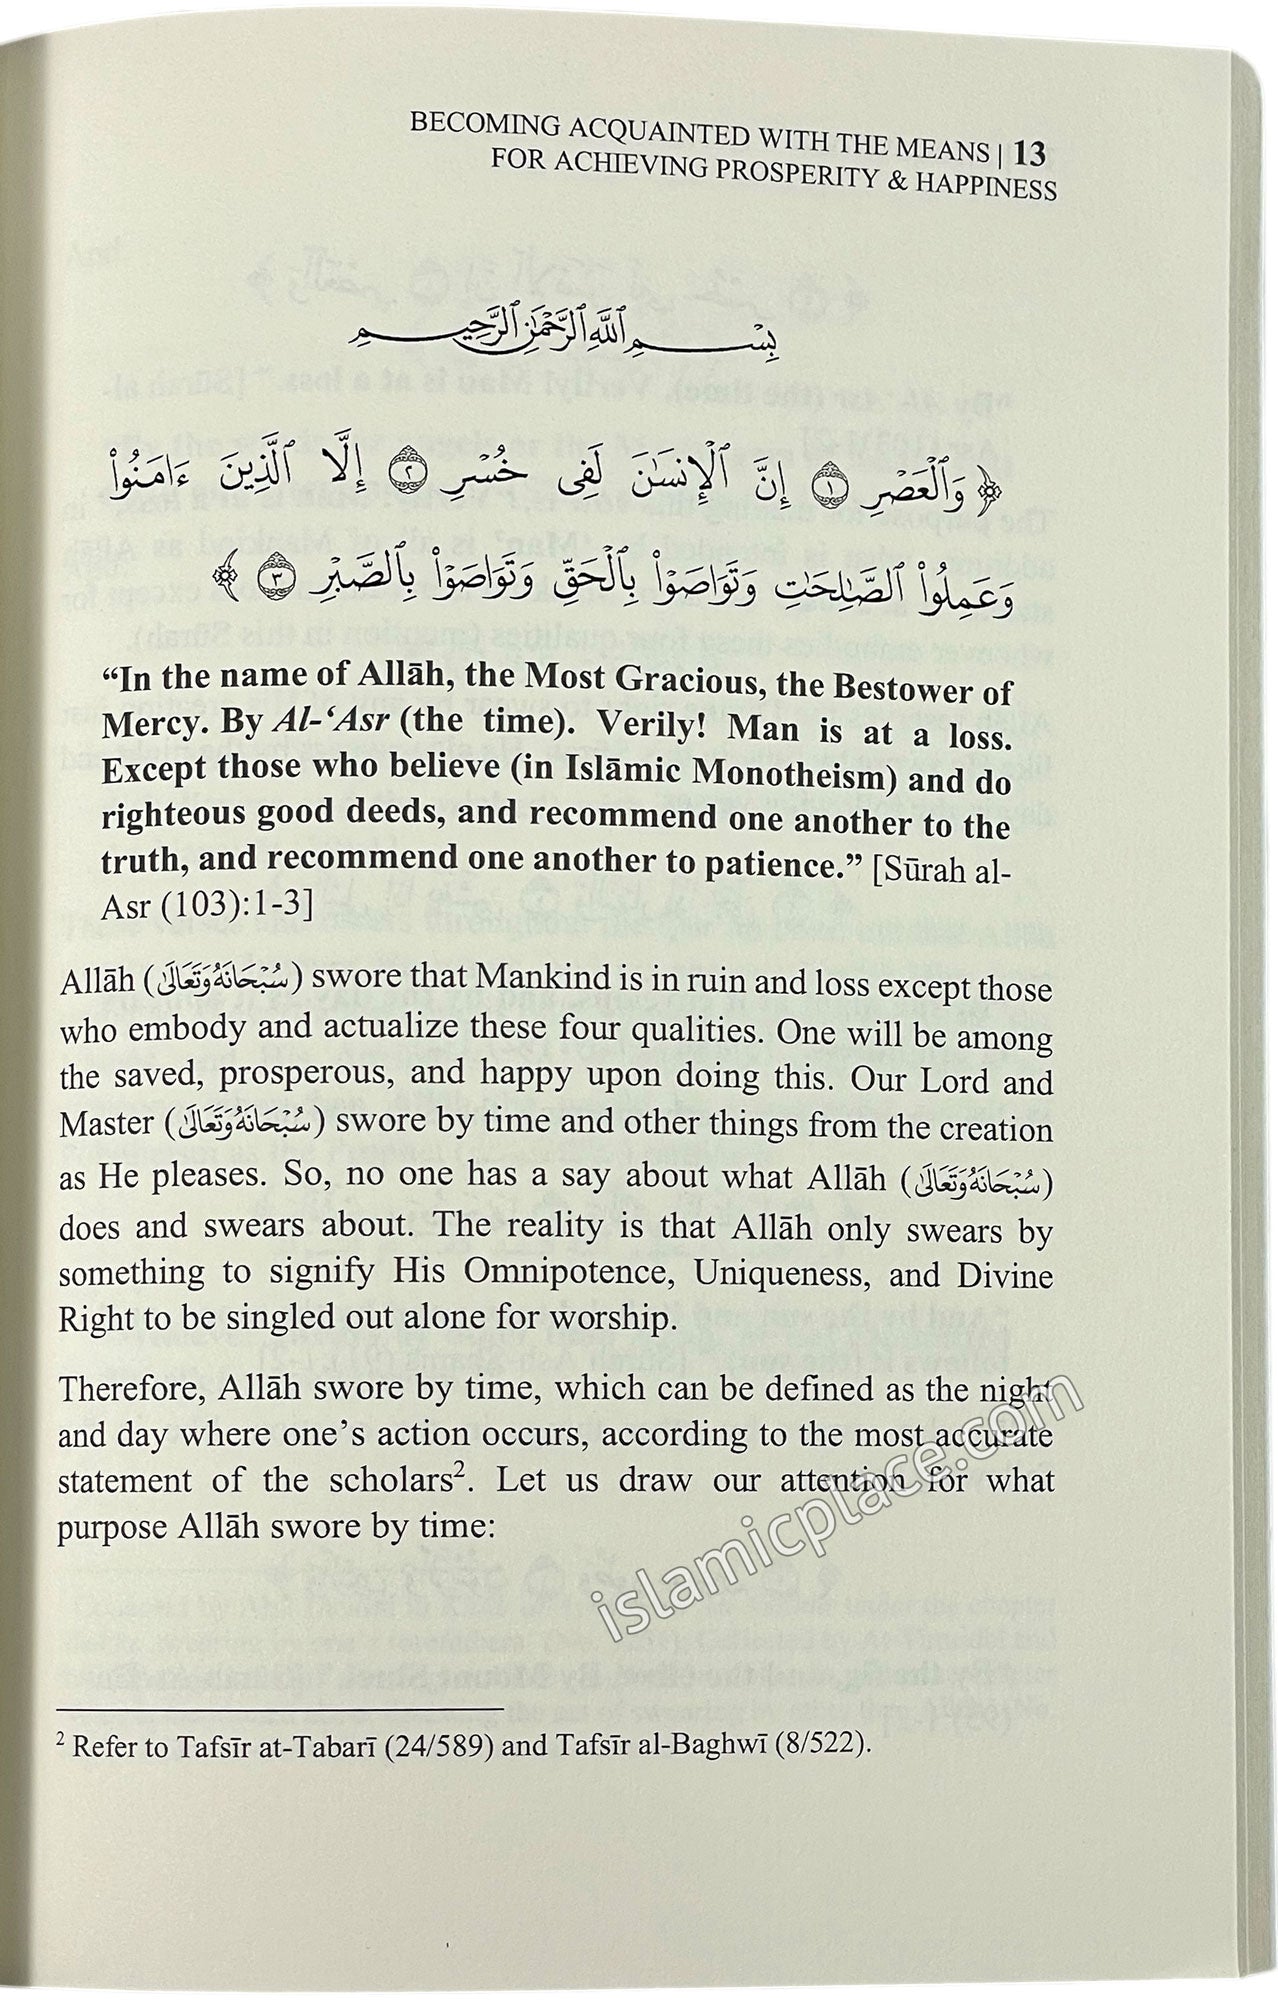 BECOMING ACQUAINTED WITH THE MEANS | 13
FOR ACHIEVING PROSPERITY & HAPPINESS
بِسْمِ ٱللَّهِ ٱلرَّحْمَٰنِ ٱلرَّحِيمِ
﴿ وَٱلْعَصْرِ ۝١ إِنَّ ٱلْإِنسَٰنَ لَفِى خُسْرٍ ۝٢ إِلَّا ٱلَّذِينَ ءَامَنُوا۟
وَعَمِلُوا۟ ٱلصَّٰلِحَٰتِ وَتَوَاصَوْا۟ بِٱلْحَقِّ وَتَوَاصَوْا۟ بِٱلصَّبْرِ ۝٣ ﴾
“In the name of Allāh, the Most Gracious, the Bestower of
Mercy. By Al-‘Asr (the time). Verily! Man is at a loss.
Except those who believe (in Islāmic Monotheism) and do
righteous good deeds, and recommend one another to the
truth, and recommend one another to patience.” [Sūrah al-
Asr (103):1-3]
Allāh (سُبْحَانَهُ وَتَعَالَىٰ) swore that Mankind is in ruin and loss except those
who embody and actualize these four qualities. One will be among
the saved, prosperous, and happy upon doing this. Our Lord and
Master (سُبْحَانَهُ وَتَعَالَىٰ) swore by time and other things from the creation
as He pleases. So, no one has a say about what Allāh (سُبْحَانَهُ وَتَعَالَىٰ)
does and swears about. The reality is that Allāh only swears by
something to signify His Omnipotence, Uniqueness, and Divine
Right to be singled out alone for worship.
Therefore, Allāh swore by time, which can be defined as the night
and day where one’s action occurs, according to the most accurate
statement of the scholars². Let us draw our attention for what
purpose Allāh swore by time:
islamicplace.com
² Refer to Tafsīr at-Tabarī (24/589) and Tafsīr al-Baghwī (8/522).